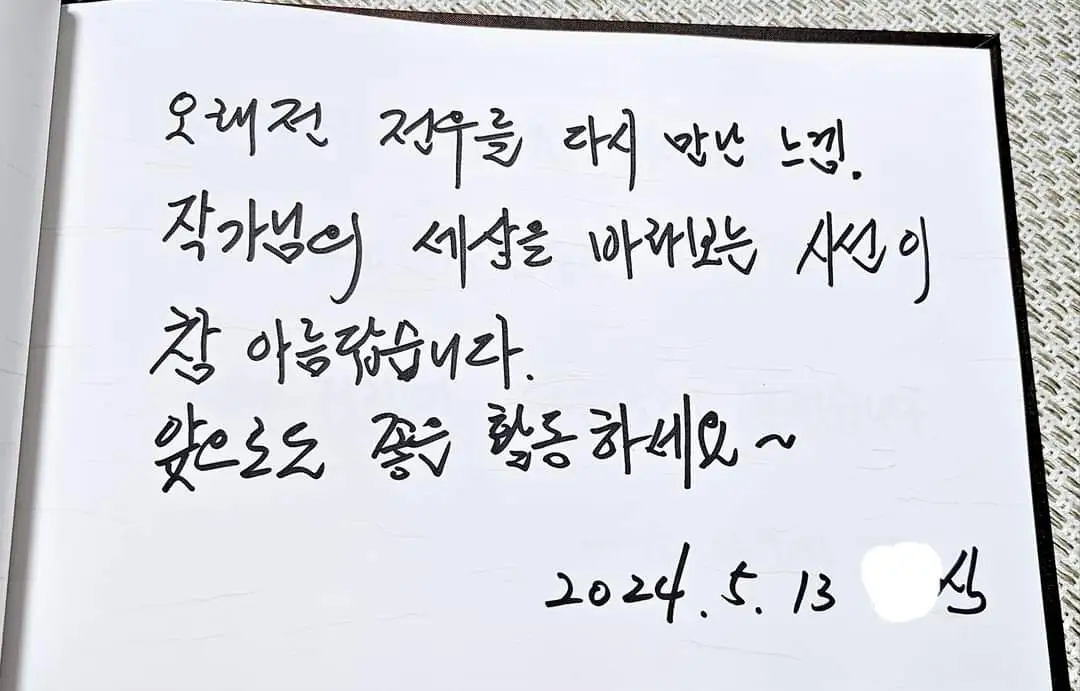 오래전 전우를 다시 만난 느낌.
작가님의 세상을 바라보는 시선이
참 아름답습니다.
앞으로도 좋은 활동하세요~
2024. 5. 13 식